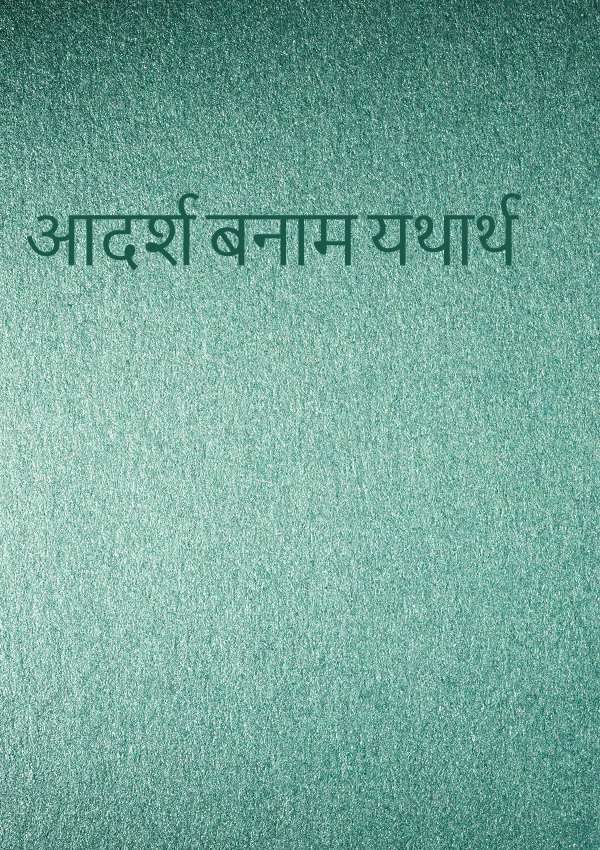 आदर्श बनाम यथार्थ